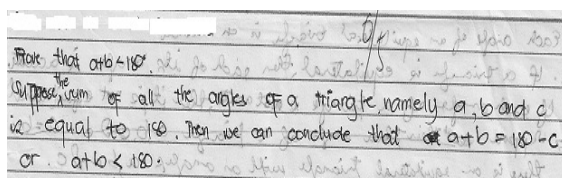 Prove that a+b<180.
Suppose, the sum of all the angles of a triangle, namely a, b and c
is equal to 180. Then we can conclude that a+b = 180-c
or a+b < 180.